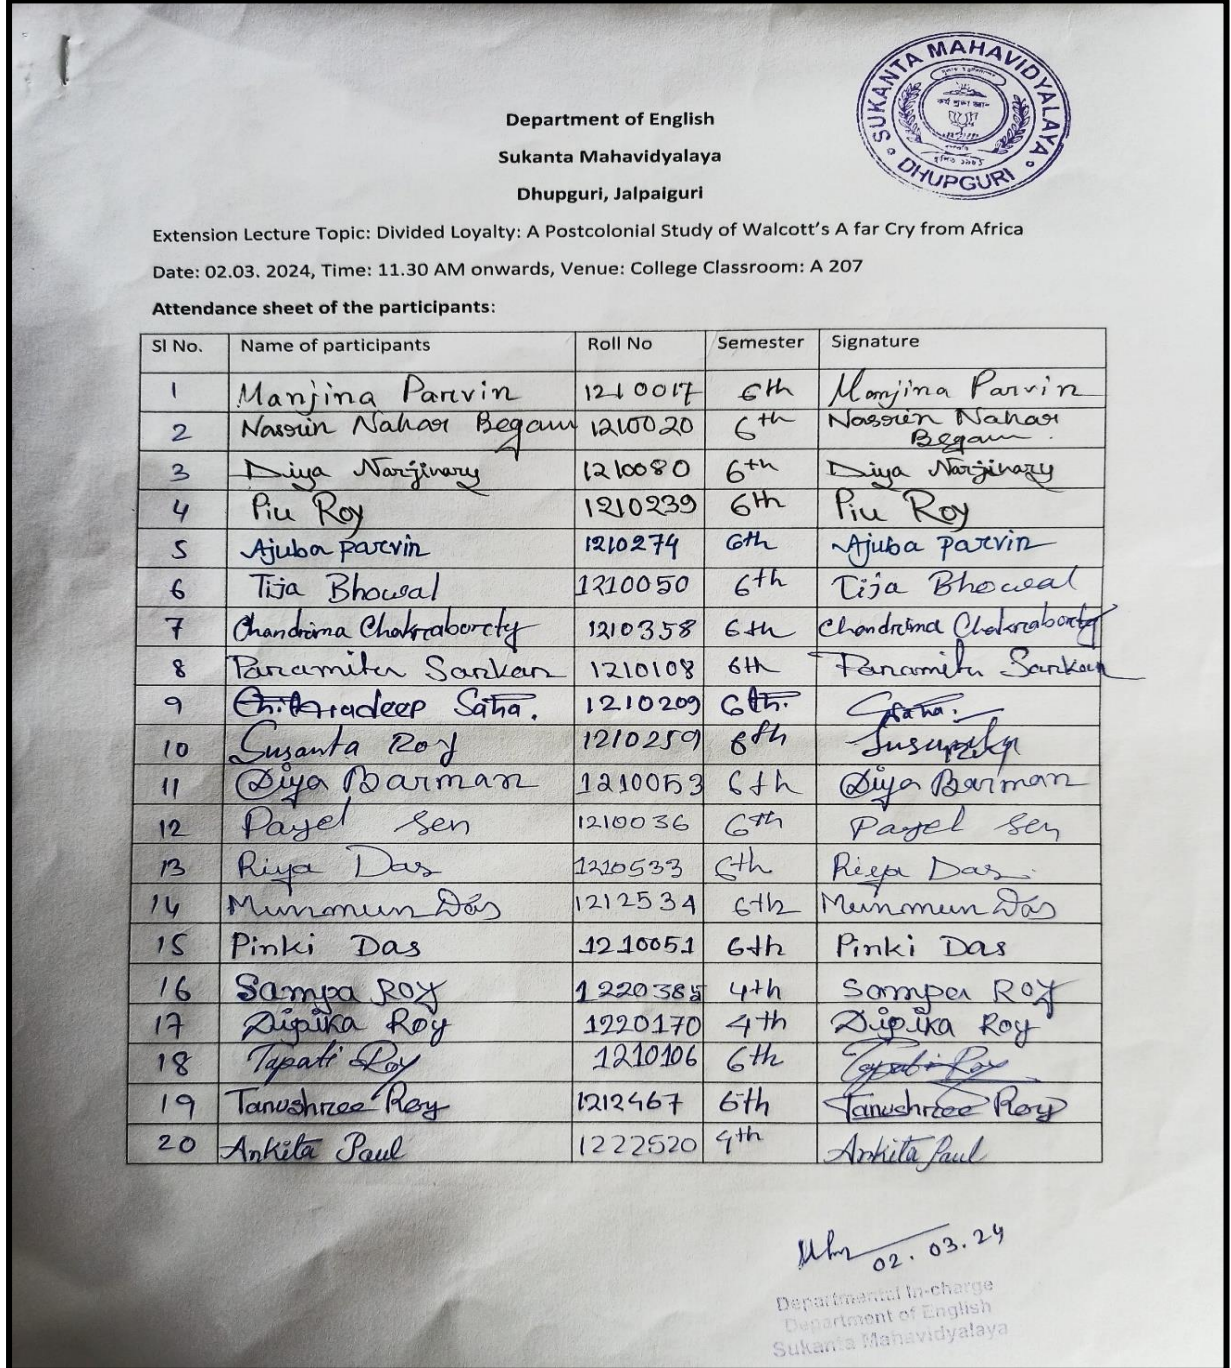 SUKANTA MAHAVIDYALAYA
DHUPGURI
Department of English
Sukanta Mahavidyalaya
Dhupguri, Jalpaiguri
Extension Lecture Topic: Divided Loyalty: A Postcolonial Study of Walcott's A far Cry from Africa
Date: 02.03. 2024, Time: 11.30 AM onwards, Venue: College Classroom: A 207
Attendance sheet of the participants:
Sl No. Name of participants Roll No Semester Signature
1 Manjina Parvin 1210017 6th Manjina Parvin
2 Nasrin Nahar Begam 1210020 6th Nasrin Nahar Begam
3 Diya Narjinary 1210080 6th Diya Narjinary
4 Piu Roy 1210239 6th Piu Roy
5 Ajuba Parvin 1210274 6th Ajuba Parvin
6 Tija Bhowal 1210050 6th Tija Bhowal
7 Chandrima Chakraborty 1210358 6th Chandrima Chakraborty
8 Paramita Sarkar 1210108 6th Paramita Sarkar
9 Saha. 1210209 6th.
10 Susanta Roy 1210259 6th
11 Diya Barman 1210053 6th Diya Barman
12 Payel Sen 1210036 6th Payel Sen
13 Riya Das 1210533 6th Riya Das
14 Munmun Das 1212534 6th Munmun Das
15 Pinki Das 1210051 6th Pinki Das
16 Sampa Roy 1220385 4th Sampa Roy
17 Dipika Roy 1220170 4th Dipika Roy
18 Tapati Roy 1210106 6th Tapati Roy
19 Tanushree Roy 1212467 6th Tanushree Roy
20 Ankita Paul 1222520 4th Ankita Paul
02.03.24
Departmental In-charge
Department of English
Sukanta Mahavidyalaya